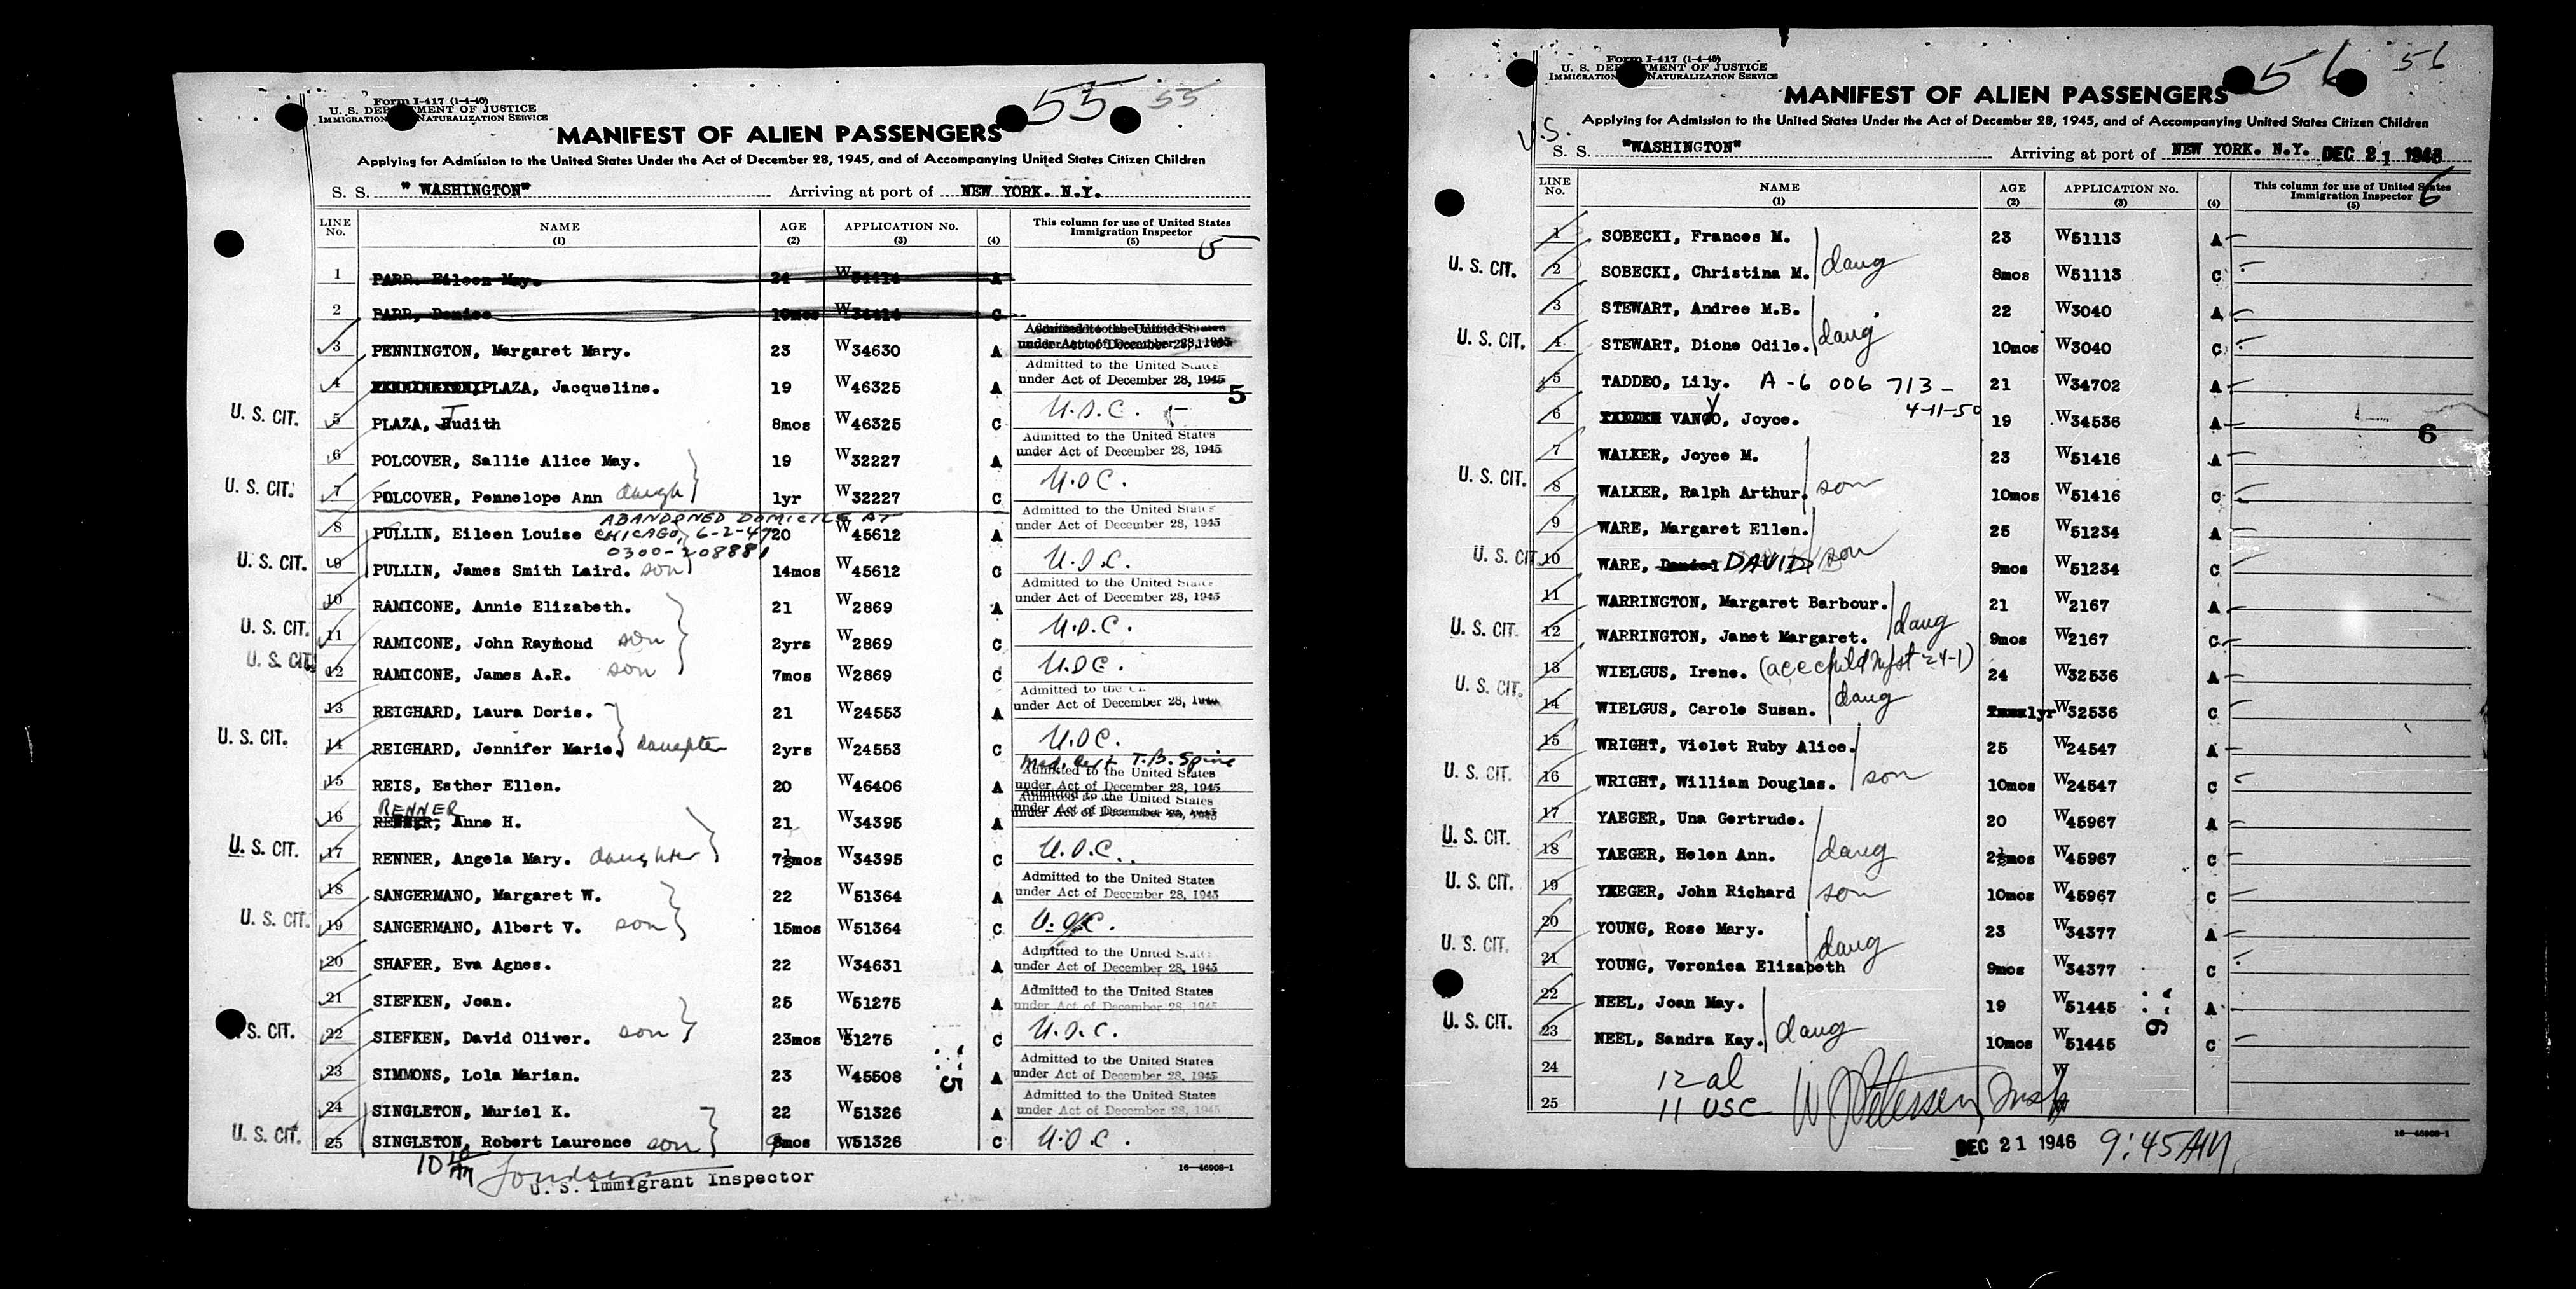 Form I-417 (1-4-46)
U. S. DEPARTMENT OF JUSTICE
IMMIGRATION NATURALIZATION SERVICE
55 55
MANIFEST OF ALIEN PASSENGERS
Applying for Admission to the United States Under the Act of December 28, 1945, and of Accompanying United States Citizen Children
S. S. " WASHINGTON" Arriving at port of NEW YORK. N.Y.
LINE No. NAME (1) AGE (2) APPLICATION No. (3) (4) This column for use of United States Immigration Inspector (5)
5
1 PARR, Eileen May. 24 W34414 A
2 PARR, Denise 10mos W34414 C
Admitted to the United States
under Act of December 28, 1945
3 PENNINGTON, Margaret Mary. 23 W34630 A
Admitted to the United States
under Act of December 28, 1945
4 PLAZA, Jacqueline. 19 W46325 A
5
U. S. CIT. 5 PLAZA, Judith 8mos W46325 C U.S.C.
Admitted to the United States
under Act of December 28, 1945
6 POLCOVER, Sallie Alice May. 19 W32227 A
U. S. CIT. 7 POLCOVER, Pennelope Ann daugh 1yr W32227 C U.S.C.
ABANDONED DOMICILE AT
Admitted to the United States
under Act of December 28, 1945
8 PULLIN, Eileen Louise CHICAGO, 6-2-47 20 W45612 A
0300-208881
U. S. CIT. 9 PULLIN, James Smith Laird. son 14mos W45612 C U.S.C.
Admitted to the United States
under Act of December 28, 1945
10 RAMICONE, Annie Elizabeth. 21 W2869 A
U. S. CIT. 11 RAMICONE, John Raymond son 2yrs W2869 C U.S.C.
U. S. CIT. 12 RAMICONE, James A.R. son 7mos W2869 C U.S.C.
Admitted to the
under Act of December 28, 1945
13 REIGHARD, Laura Doris. 21 W24553 A
U. S. CIT. 14 REIGHARD, Jennifer Marie. daughter 2yrs W24553 C U.S.C.
Med. Cert T.B. Spine
Admitted to the United States
under Act of December 28, 1945
15 REIS, Esther Ellen. 20 W46406 A
Admitted to the United States
under Act of December 28, 1945
RENNER
16 RENNER, Anne H. 21 W34395 A
U. S. CIT. 17 RENNER, Angela Mary. daughter 7½mos W34395 C U.S.C.
Admitted to the United States
under Act of December 28, 1945
18 SANGERMANO, Margaret W. 22 W51364 A
U. S. CIT. 19 SANGERMANO, Albert V. son 15mos W51364 C U.S.C.
Admitted to the United States
under Act of December 28, 1945
20 SHAFER, Eva Agnes. 22 W34631 A
Admitted to the United States
under Act of December 28, 1945
21 SIEFKEN, Joan. 25 W51275 A
U. S. CIT. 22 SIEFKEN, David Oliver. son 23mos W51275 C U.S.C.
Admitted to the United States
under Act of December 28, 1945
23 SIMMONS, Lola Marian. 23 W45508 A
5
Admitted to the United States
under Act of December 28, 1945
24 SINGLETON, Muriel K. 22 W51326 A
U. S. CIT. 25 SINGLETON, Robert Laurence son 9mos W51326 C U.S.C.
10 AM
U. S. Immigrant Inspector
16—46908-1
Form I-417 (1-4-46)
U. S. DEPARTMENT OF JUSTICE
IMMIGRATION NATURALIZATION SERVICE
56 56
MANIFEST OF ALIEN PASSENGERS
Applying for Admission to the United States Under the Act of December 28, 1945, and of Accompanying United States Citizen Children
U.S.
S. S. "WASHINGTON" Arriving at port of NEW YORK. N.Y. DEC 21 1946
LINE No. NAME (1) AGE (2) APPLICATION No. (3) (4) This column for use of United States Immigration Inspector (5)
6
1 SOBECKI, Frances M. 23 W51113 A
U. S. CIT. 2 SOBECKI, Christina M. daug 8mos W51113 C
3 STEWART, Andree M.B. 22 W3040 A
U. S. CIT. 4 STEWART, Dione Odile. daug 10mos W3040 C
5 TADDEO, Lily. A-6 006 713- 21 W34702 A
4-11-50
6 VANVO, Joyce. 19 W34536 A
6
7 WALKER, Joyce M. 23 W51416 A
U. S. CIT. 8 WALKER, Ralph Arthur. son 10mos W51416 C
9 WARE, Margaret Ellen. 25 W51234 A
U. S. CIT. 10 WARE, Daniel DAVID son 9mos W51234 C
11 WARRINGTON, Margaret Barbour. 21 W2167 A
U. S. CIT. 12 WARRINGTON, Janet Margaret. daug 9mos W2167 C
13 WIELGUS, Irene. (acc child Mfst 24-1) 24 W32536 A
U. S. CIT. 14 WIELGUS, Carole Susan. daug 1yr W32536 C
15 WRIGHT, Violet Ruby Alice. 25 W24547 A
U. S. CIT. 16 WRIGHT, William Douglas. son 10mos W24547 C
17 YAEGER, Una Gertrude. 20 W45967 A
U. S. CIT. 18 YAEGER, Helen Ann. daug 2½mos W45967 C
U. S. CIT. 19 YAEGER, John Richard son 10mos W45967 C
20 YOUNG, Rose Mary. 23 W34377 A
U. S. CIT. 21 YOUNG, Veronica Elizabeth daug 9mos W34377 C
22 NEEL, Joan May. 19 W51445 A
6
U. S. CIT. 23 NEEL, Sandra Kay. daug 10mos W51445 C
24 12 al W
25 11 USC W Petersen Insp W
16—46908-1
DEC 21 1946 9:45AM